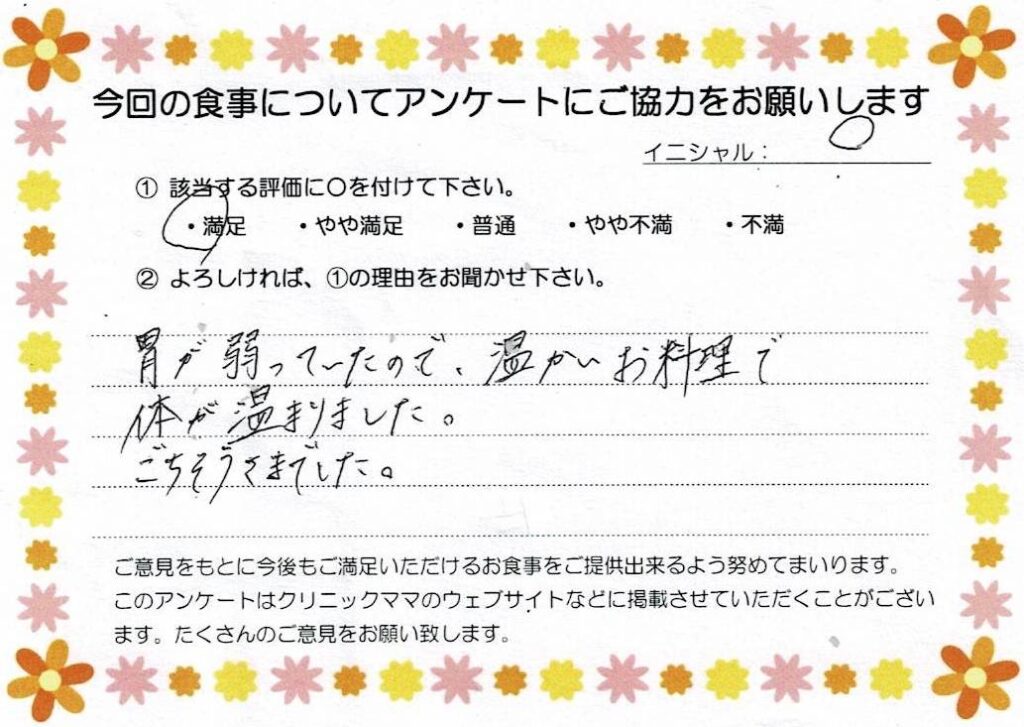 今回の食事についてアンケートにご協力をお願いします
イニシャル：
① 該当する評価に〇を付けて下さい。
・満足 ・やや満足 ・普通 ・やや不満 ・不満
② よろしければ、①の理由をお聞かせ下さい。
胃が弱っていたので、温かいお料理で
体が温まりました。
ごちそうさまでした。
ご意見をもとに今後もご満足いただけるお食事をご提供出来るよう努めてまいります。
このアンケートはクリニックママのウェブサイトなどに掲載させていただくことがござい
ます。たくさんのご意見をお願い致します。